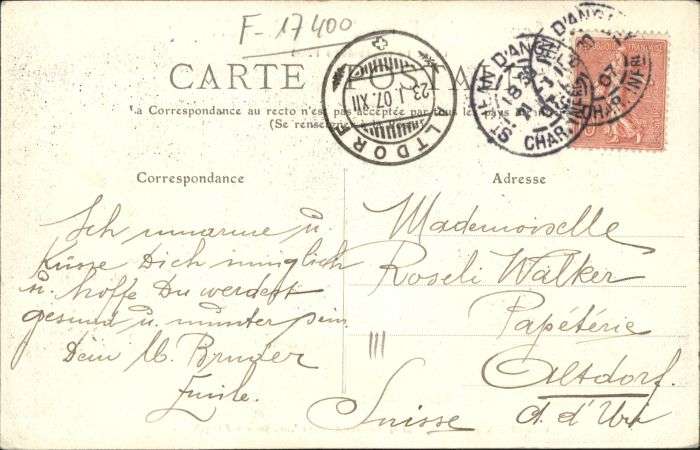 F-17400
CARTE POSTALE
La Correspondance au recto n'est pas acceptée par tous les pays
(Se renseigner à la
ALTDORF
23.I.07.XII
ST JEAN D'ANGELY
CHAR. INFRE
18
21
07
Correspondance
Adresse
Ich umarme u.
Küsse Dich inniglich
u. hoffe Du werdest
gesund u. munter sein.
Dein lb. Bruder
Emile.
Mademoiselle
Roseli Walker
Papéterie
Altdorf.
Suisse Ct. d'Uri